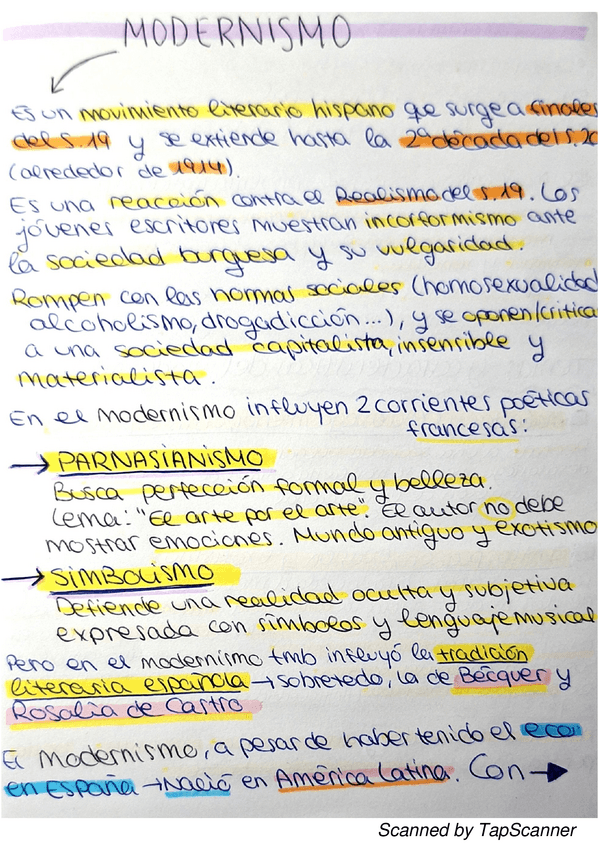 MODERNISMO
Es un movimiento literario hispano que surge a finales
del s.19 y se extiende hasta la 2ª década del s.20
(alrededor de 1914).
Es una reacción contra el Realismo del s.19. Los
jóvenes escritores muestran incorformismo ante
la sociedad burguesa y su vulgaridad.
Rompen con las normas sociales (homosexualidad
alcoholismo, drogadicción...), y se oponen/critica
a una sociedad capitalista, insensible y
materialista.
En el modernismo influyen 2 corrientes poéticas
francesas:
→ PARNASIANISMO
Busca perfección formal y belleza.
Lema: "El arte por el arte". El autor no debe
mostrar emociones. Mundo antiguo y exotismo
→ SIMBOLISMO
Defiende una realidad oculta y subjetiva
expresada con símbolos y lenguaje musical
Pero en el modernismo tmb influyó la tradición
literaria española → sobretodo, la de Bécquer y
Rosalía de Castro
El Modernismo, a pesar de haber tenido el eco
en España → Nació en América Latina. Con →
Scanned by TapScanner